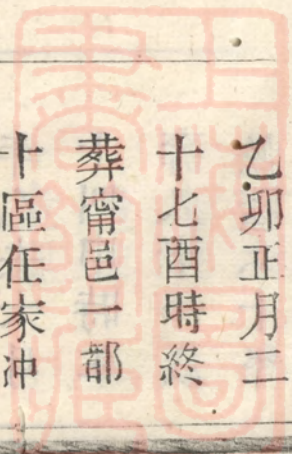 乙卯正月二
十七酉時終
葬甯邑一都
十區任家冲